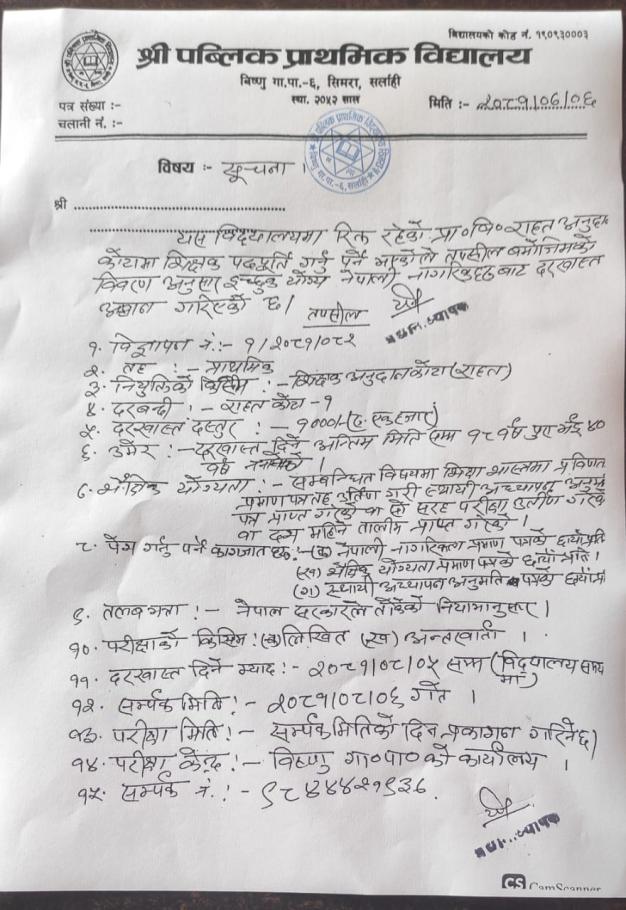 विद्यालयको कोड नं. १९०९३०००३
श्री पब्लिक प्राथमिक विद्यालय
बिष्णु गा.पा.-६, सिमरा, सर्लाही
स्था. २०५२ साल
पत्र संख्या :-
मिति :- २०८१/०८/०६
चलानी नं. :-
विषय :- सूचना ।
श्री
यस विद्यालयमा रिक्त रहेको प्रा०वि० राहत अनुदान
कोटामा शिक्षक पदपूर्ति गर्नु पर्ने भएकोले तपसील बमोजिमको
विवरण अनुसार इच्छुक योग्य नेपाली नागरिकहरुबाट दरखास्त
अह्वान गरिएको छ।
तपसील
१. विज्ञापन नं.:- १/२०८१/०८२
२. तह :- प्राथमिक
३. नियुक्तिको किसिम :- शिक्षक अनुदान कोटा (राहत)
४. दरबन्दी :- राहत कोटा - १
५. दरखास्त दस्तुर :- १०००/- (रु. एक हजार)
६. उमेर :- दरखास्त दिने अन्तिम मिति सम्म १८ वर्ष पुरा भई ४०
वर्ष ननाघेको ।
७. शैक्षिक योग्यता :- सम्बन्धित विषयमा शिक्षा शास्त्रमा प्रविणता
प्रमाणपत्र तह उर्तिण गरी स्थायी अध्यापन अनुमति
पत्र प्राप्त गरेको वा सो सरह परीक्षा उर्तीण गरेको
वा दश महिने तालीम प्राप्त गरेको ।
८. पेश गर्नु पर्ने कागजातहरु :- (क) नेपाली नागरिकता प्रमाण पत्रको छाँयाप्रति
(ख) शैक्षिक योग्यता प्रमाण पत्रको छाँया प्रति ।
(ग) स्थायी अध्यापन अनुमति पत्रको छाँयाप्रति
९. तलब भत्ता :- नेपाल सरकारले तोकेको नियमानुसार ।
१०. परीक्षाको किसिम :(क) लिखित (ख) अन्तरवार्ता ।
११. दरखास्त दिने म्याद :- २०८१/०८/०५ सम्म (विद्यालय समय
मा)
१२. सर्म्पक मिति :- २०८१/०८/०६ गते ।
१३. परीक्षा मिति :- सर्म्पक मितिको दिन प्रकाशन गरिनेछ।
१४. परीक्षा केन्द्र :- विष्णु गा०पा० को कार्यालय ।
१५. सर्म्पक नं. :- ९८४४४२१९३८
CS CamScanner